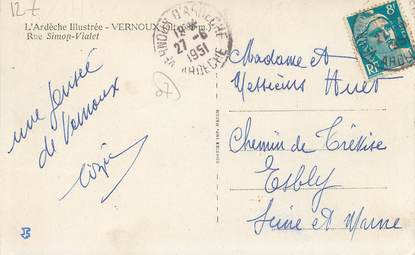 127
L'Ardèche Illustrée - VERNOUX
Rue Simon-Vialet
VERNOUX D'ARDECHE
27-8
1951
ARDECHE
8F
RF
une pensée
de Vernoux
Madame et
Messieurs Huet
Chemin de
Esbly
Seine et Marne